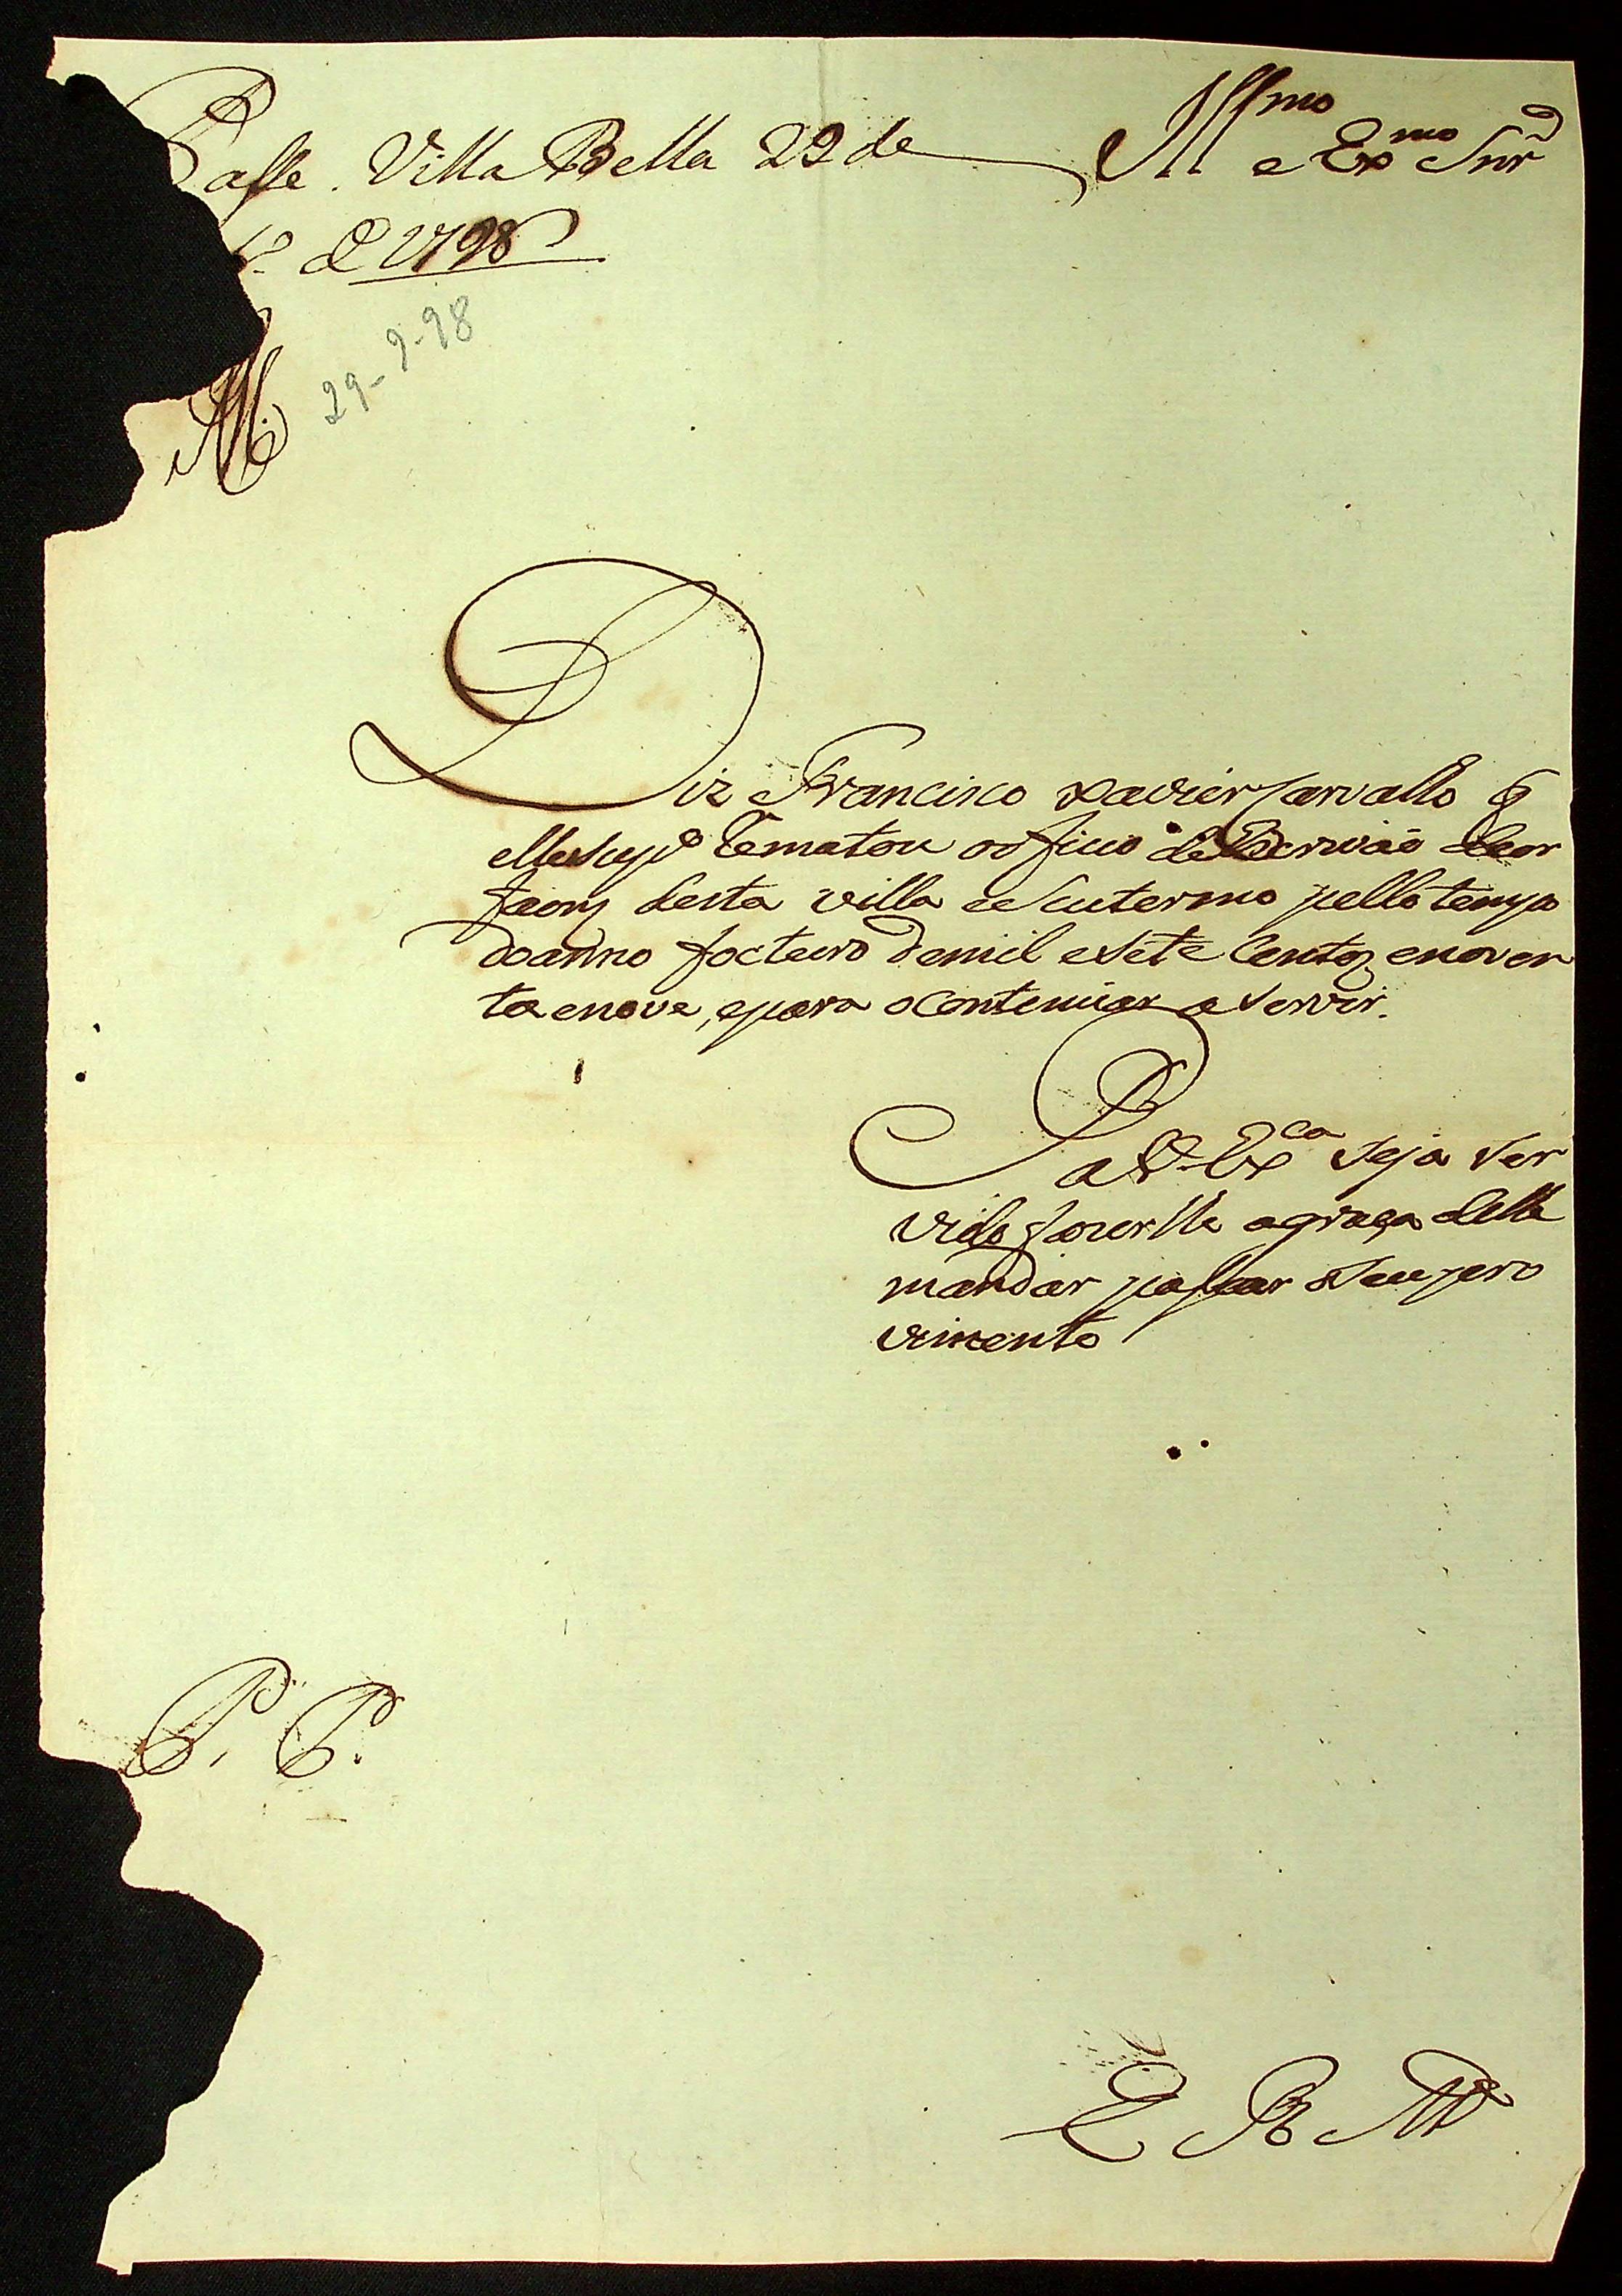 Passe. Villa Bella 29 de
de 1798
29-9-98
Ill.mo e Ex.mo Snr
Diz Francisco Xavier Carvallo q
elle sup.e Rematou oofficio de Escrivão deor
faons desta villa eeSeutermo pello tempo
doanno focturo demil esete Centos enoven
ta enove, epara oContenuar a servir.
P
a V. Ex.ca seja ser
vido fazerlle agraça delle
mandar passar oSeu pro
vimento
P. P.
E R M